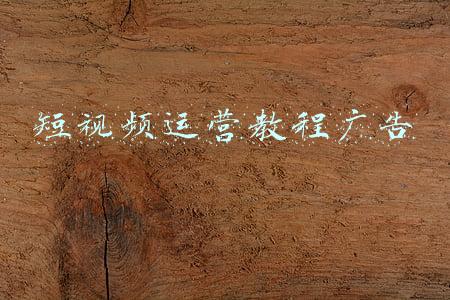 短视频运营教程广告